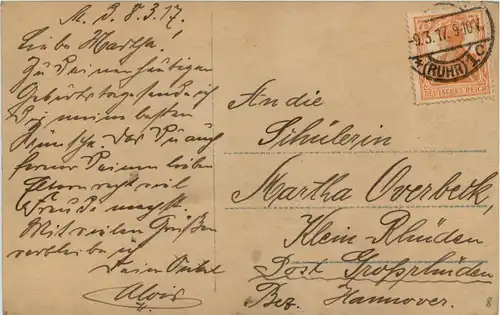 M. D. 8.3.17.
Liebe Martha!
Zu Deinem heutigen
Geburtstage sende ich
Dir meine besten
Wünsche. Daß Du auch
ferner Deinen lieben
Eltern recht viel
Freude machst.
Mit vielen Grüßen
verbleibe ich
Dein Onkel
Alois
An die
Schülerin
Martha Overbeck,
Klein-Rhüden
Post Großrhüden
Bez. Hannover.
-9.3.17. 9-10V.
(RUHR) 1c
DEUTSCHES REICH
7½
8